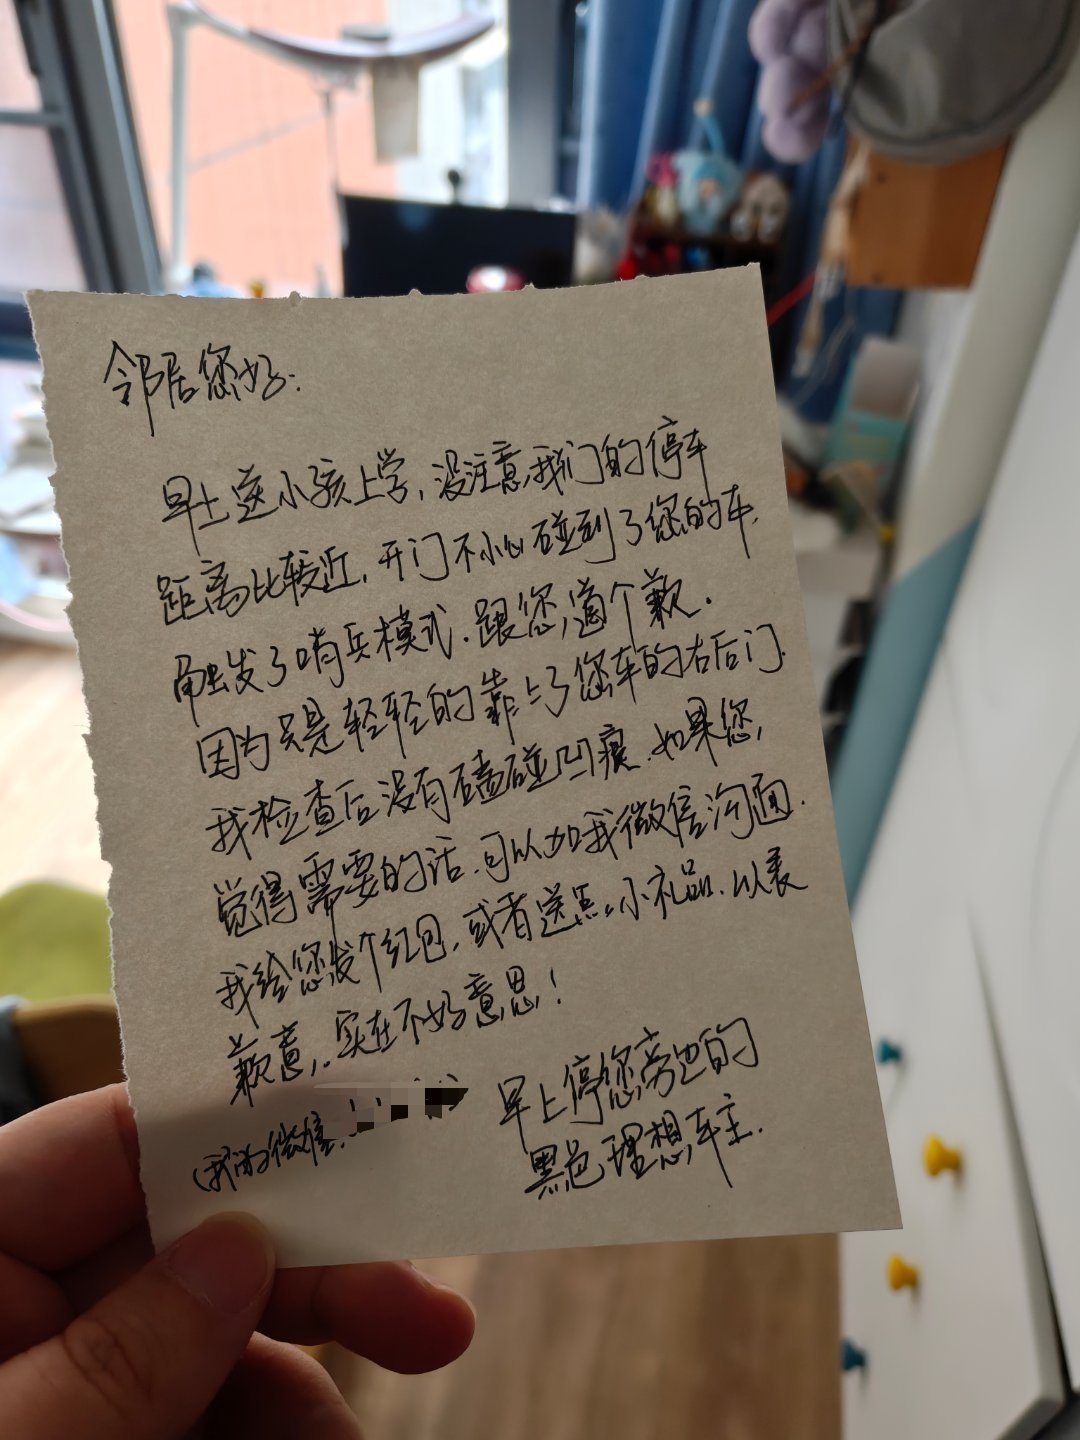 邻居您好:
早上送小孩上学,没注意我们的停车
距离比较近,开门不小心碰到了您的车.
触发了哨兵模式.跟您道个歉.
因为只是轻轻的靠上了您车的右后门.
我检查后没有磕碰凹痕.如果您,
觉得需要的话.可以加我微信沟通.
我给您发个红包,或者送点小礼品.以表
歉意,.实在不好意思!
(我的微信,
早上停您旁边的
黑色理想车主.